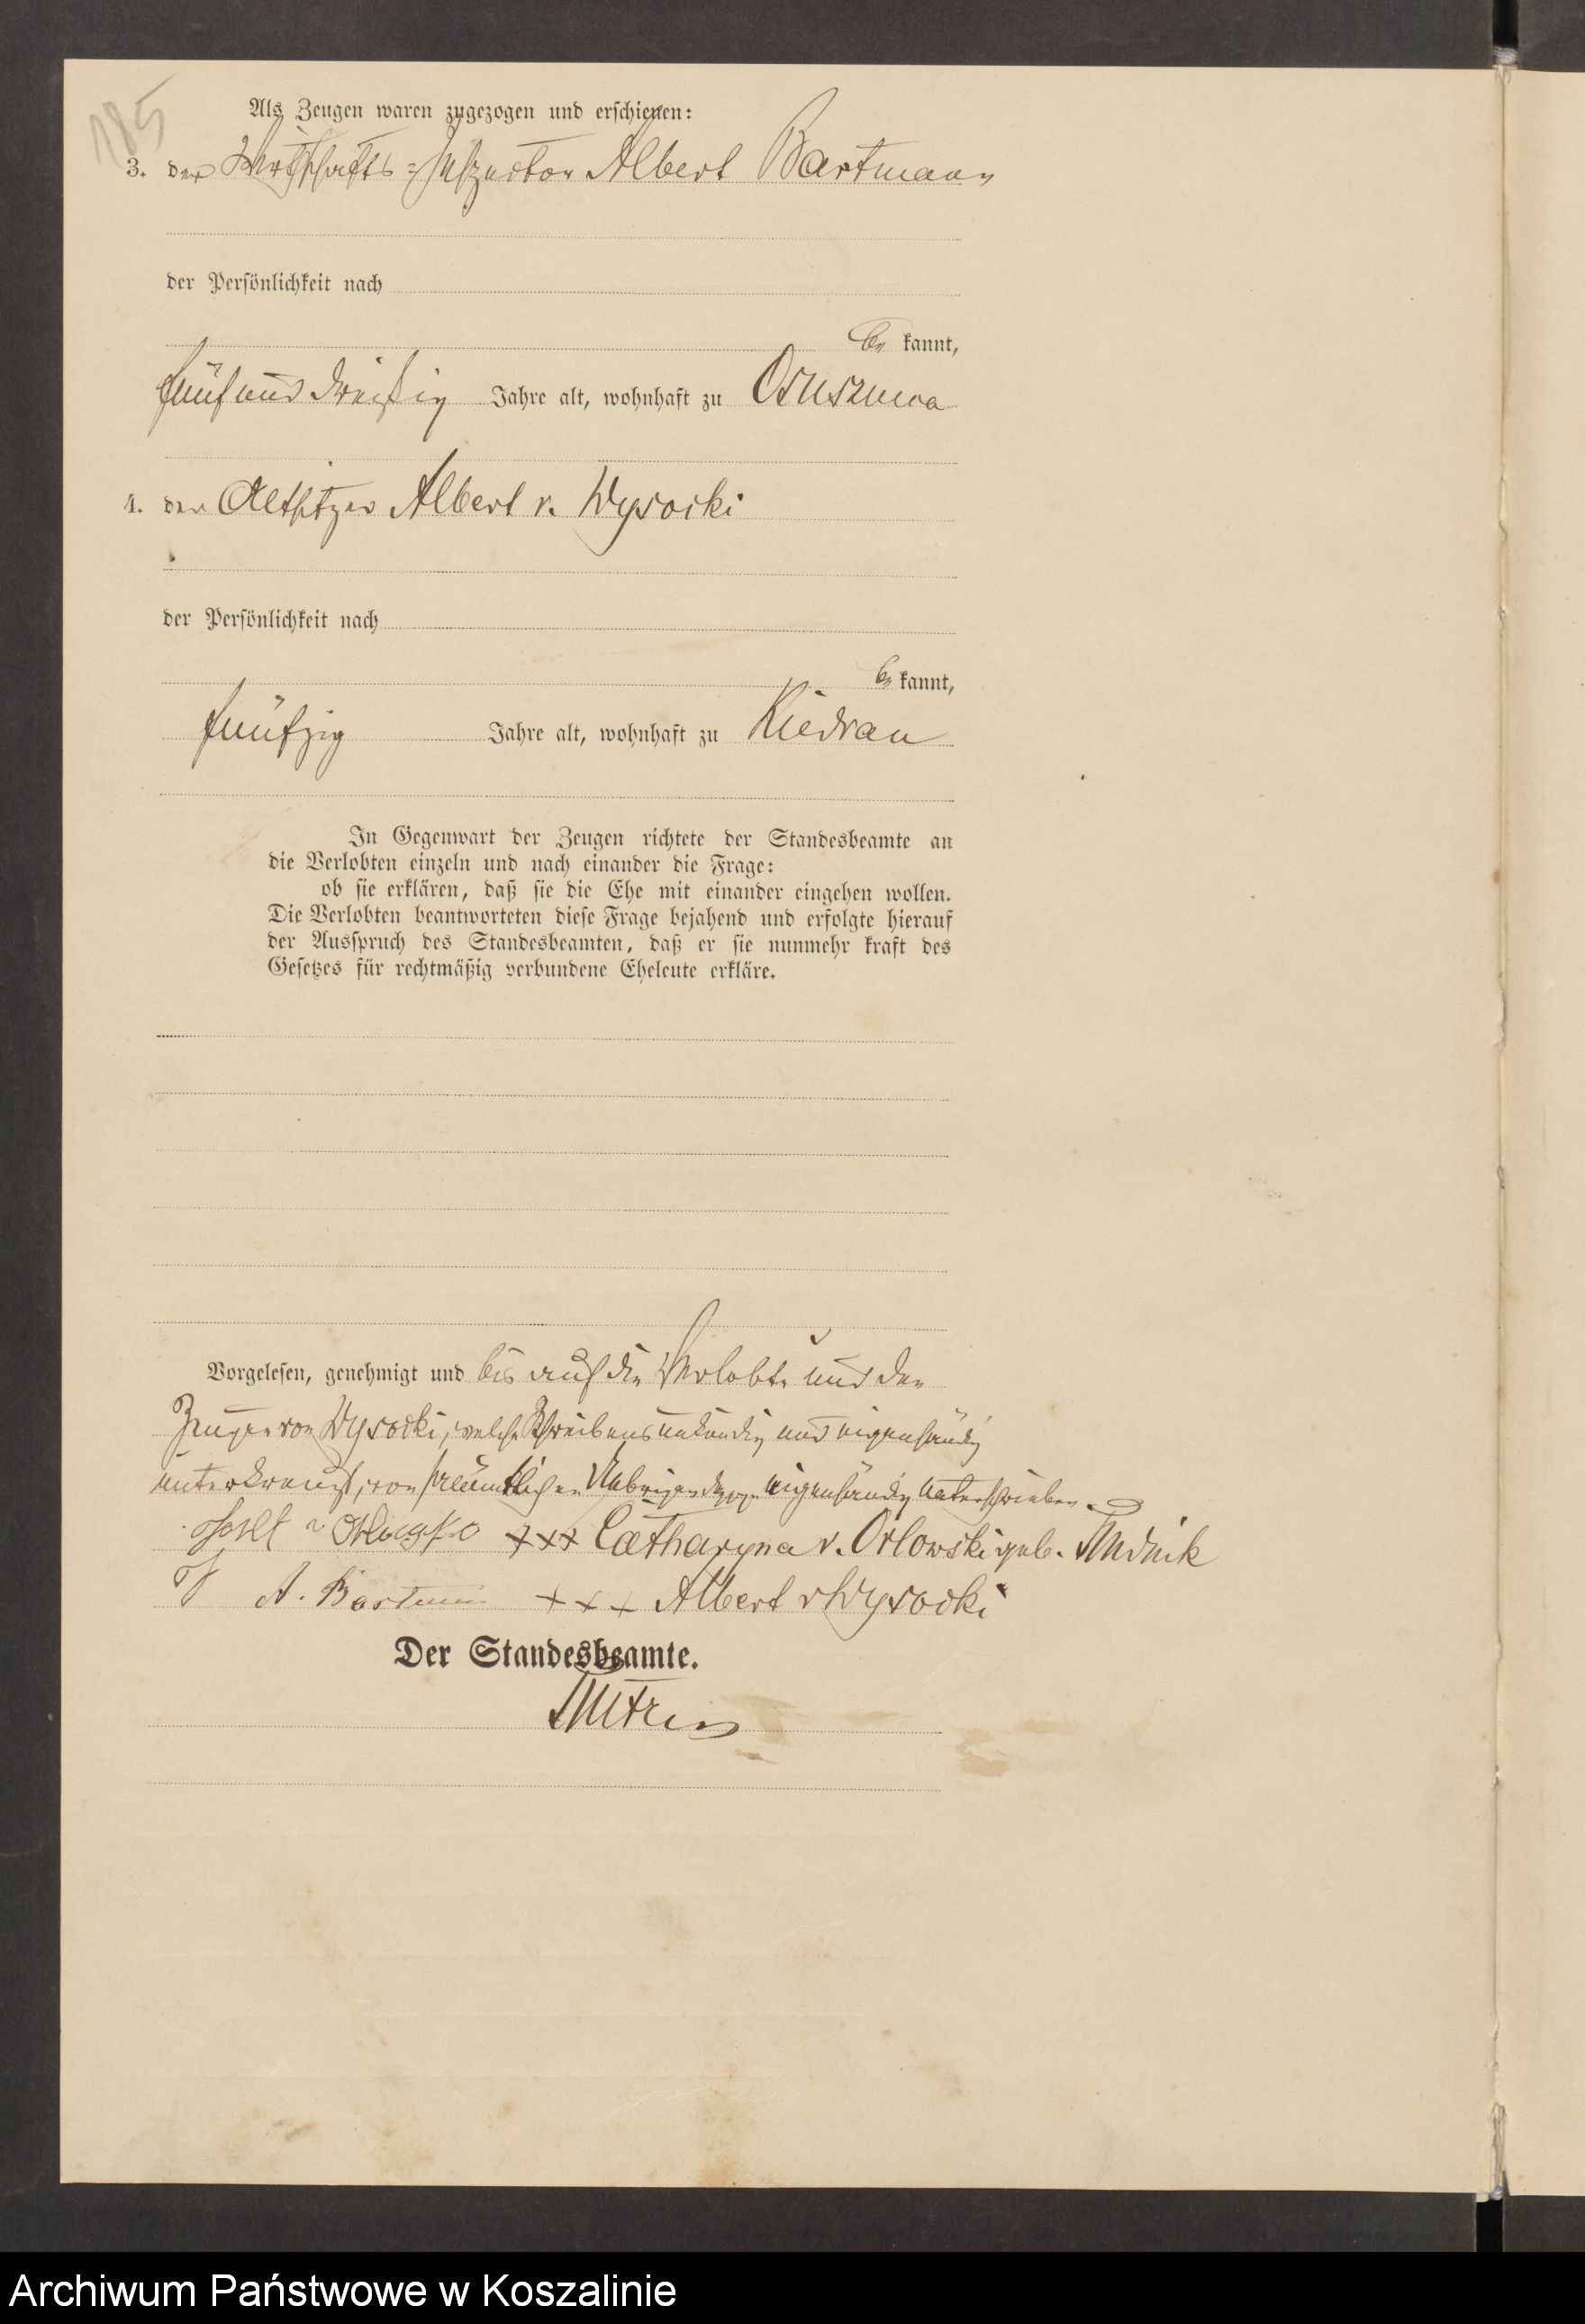 185
Als Zeugen waren zugezogen und erschienen:
3. der Wirtschafts-Inspector Albert Bartmann
der Persönlichkeit nach
be kannt,
fünfunddreißig Jahre alt, wohnhaft zu
4. der Altsitzer Albert v. Wysocki
der Persönlichkeit nach
be kannt,
fünfzig Jahre alt, wohnhaft zu Kiedrau
In Gegenwart der Zeugen richtete der Standesbeamte an
die Verlobten einzeln und nach einander die Frage:
ob sie erklären, daß sie die Ehe mit einander eingehen wollen.
Die Verlobten beantworteten diese Frage bejahend und erfolgte hierauf
der Ausspruch des Standesbeamten, daß er sie nunmehr kraft des
Gesetzes für rechtmäßig verbundene Eheleute erkläre.
Vorgelesen, genehmigt und bis auf die Verlobte und den
Zeugen von Wysocki, welche Schreibensunkundig und eigenhändig
unterkreuzt, von sämtlichen Uebrigen eigenhändig unterschrieben.
+++ Catharyna v. Orlowski geb.
A. Bartmann +++ Albert v Wysocki
Der Standesbeamte.
Archiwum Państwowe w Koszalinie